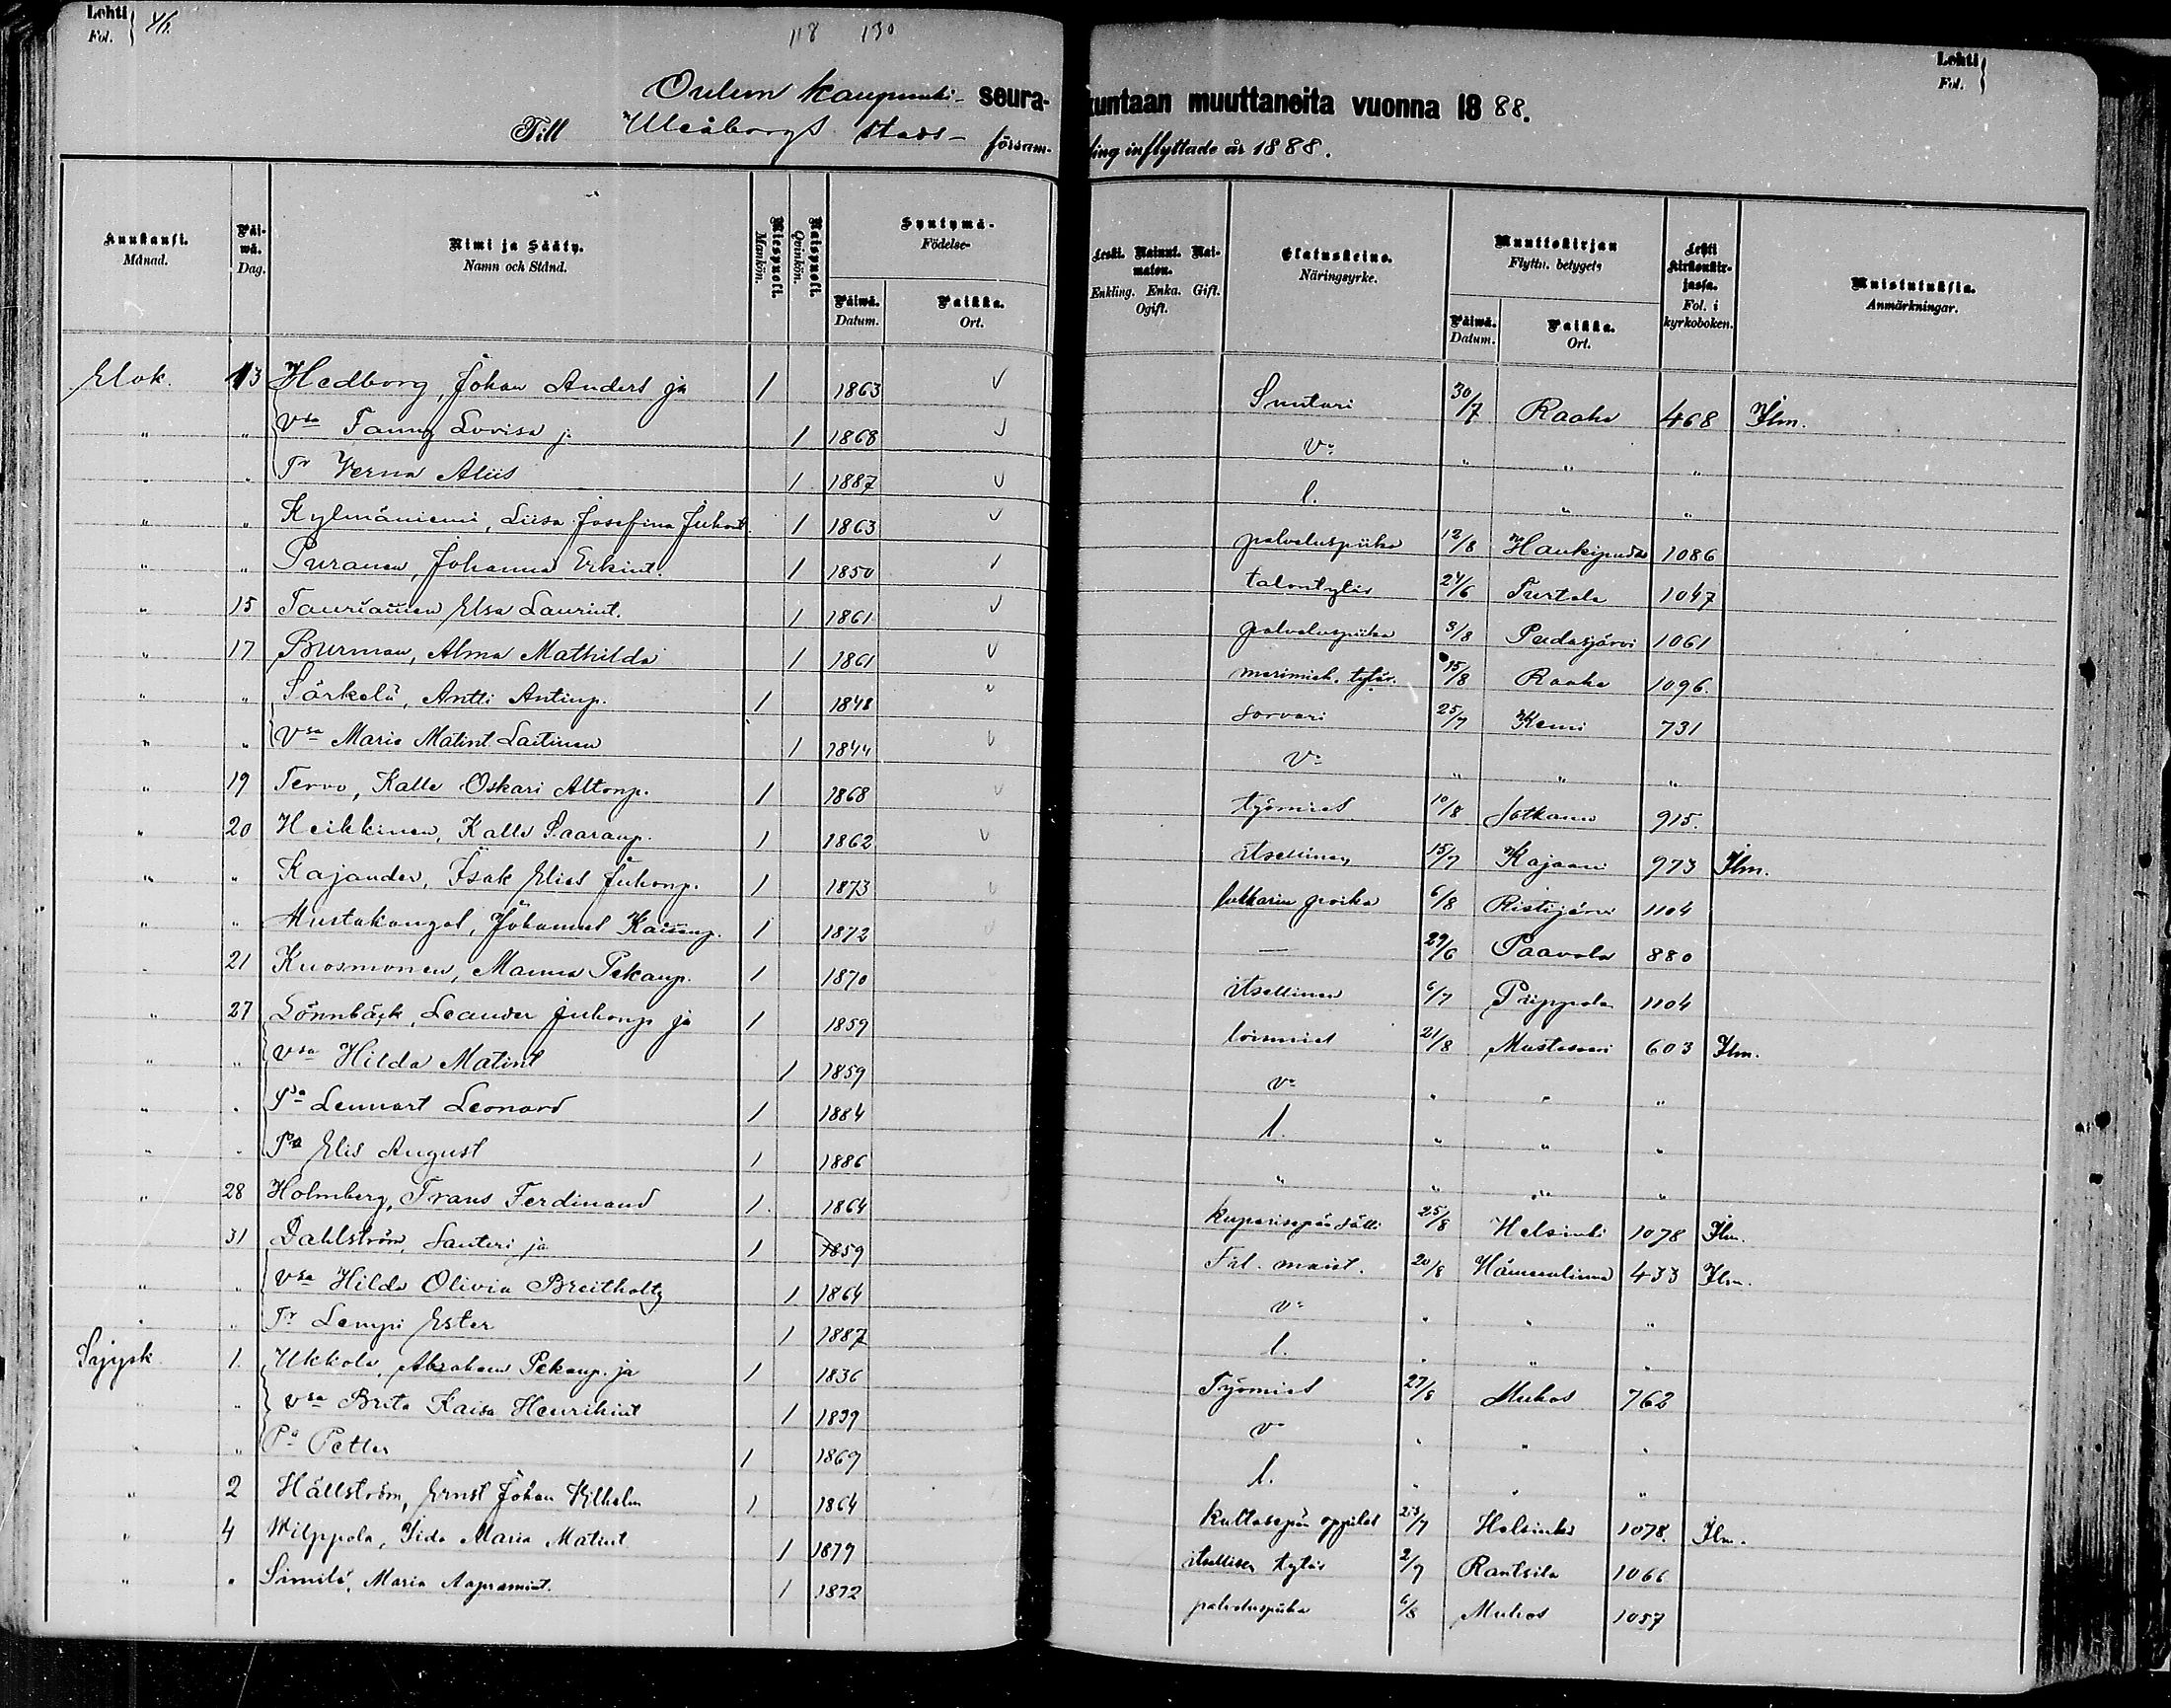 Lehti Fol. 46. 118 130 Lehti Fol.
Oulun kaupunki- seura-kuntaan muuttaneita vuonna 1888.
Till Uleåborgs stads- försam-ling inflyttade år 1888.
Kuukausi. Månad. Päiwä. Dag. Nimi ja Sääty. Namn och Stånd. Miespuoli. Mankön. Naispuoli. Qvinkön. Syntymä- Födelse- Päiwä. Datum. Paikka. Ort. Leski. Nainut. Naimaton. Enkling. Enka. Gift. Ogift. Elatuskeino. Näringsyrke. Muuttokirjan Flyttn. betygets Päiwä. Datum. Paikka. Ort. Lehti kirkonkirjassa. Fol. i kyrkoboken. Muistutuksia. Anmärkningar.
Elok. 13 Hedborg, Johan Anders ja 1 1863 Suutari 30/7 Raahe 468 Ilm.
" " Vsa Fanny Lovisa ja 1 1868 Vo " " "
" " Tr Verna Aliis 1 1887 l. " "
" " Kylmäniemi, Liisa Josefina Juhont. 1 1863 palveluspiika 12/8 Haukipudas 1086
" " Puranen, Johanna Erkint. 1 1850 talontytär 24/6 Turtola 1047
" 15 Tauriainen Elsa Laurint. 1 1861 palveluspiika 3/8 Pudasjärvi 1061
" 17 Burman, Alma Mathilda 1 1861 merimieh. tytär. 15/8 Raahe 1096.
" " Särkelä, Antti Antinp. 1 1848 sorvari 25/7 Kemi 731
" " Vsa Maria Matint. Laitinen 1 1844 Vo " " "
" 19 Tervo, Kalle Oskari Attonp. 1 1868 työmies 10/8 Sotkamo 915.
" 20 Heikkinen, Kalle Saaranp. 1 1862 itsellinen 15/7 Kajaani 973 Ilm.
" " Kajander, Isak Elias Juhonp. 1 1873 poika 6/8 Ristijärvi 1104
" " Mustakangas, Johannes Kaisanp. 1 1872 — 29/6 Paavola 880
" 21 Kuosmonen, Mannu Pekanp. 1 1870 itsellinen 6/7 Piippola 1104
" 27 Lönnbäck, Leander Juhonp. ja 1 1859 loismies 21/8 Mustasaari 603 Ilm.
" " Vsa Hilda Matint 1 1859 vo " " "
" " Psa Lennart Leonard 1 1884 l. " " "
" " Psa Elis August 1 1886 " " " "
" 28 Holmberg, Frans Ferdinand 1 1864 kuparisepän sälli 25/8 Helsinki 1078 Ilm.
31 Dahlström, Santeri ja 1 1859 Fil. maist. 20/8 Hämeenlinna 433 Ilm.
" " Vsa Hilda Olivia Breitholtz 1 1864 vo " " "
" " Tr Lempi Ester 1 1887 l. " " "
Syysk 1. Ukkola, Abraham Pekanp. ja 1 1836 Työmies 27/8 Muhos 762
" " Vsa Brita Kaisa Henrikint 1 1839 vo " " "
" " Pa Petter 1 1869 l. " " "
" 2 Hällström, Ernst Johan Vilhelm 1 1864 Kultasepän oppilas 23/7 Helsinki 1078. Ilm.
" 4 Wilppola, Iida Maria Matint 1 1879 itsellisen tytär 2/9 Rantsila 1066
" " Similä, Maria Aapramint. 1 1872 palveluspiika 6/8 Muhos 1057